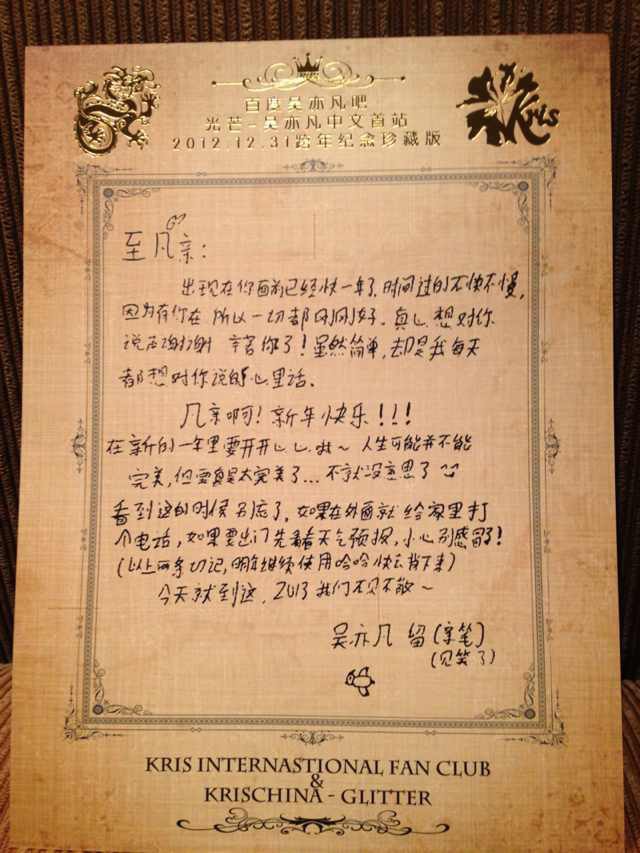 百度吴亦凡吧
光芒-吴亦凡中文首站
2012.12.31跨年纪念珍藏版
Kris
至凡亲：
出现在你面前已经快一年了，时间过的不快不慢，
因为有你在 所以一切都刚刚好。真心想对你
说声谢谢 辛苦你了！虽然简单，却是我每天
都想对你说的心里话。
凡亲啊！新年快乐！！！
在新的一年里要开开心心哦～ 人生可能并不能
完美，但要真是太完美了...不就没意思了
看到这的时候别忘了，如果在外面就给家里打
个电话，如果要出门先看看天气预报，小心别感冒了！
(以上两条切记，明年继续使用哈哈 快点背下来)
今天就到这，2013 我们不见不散～
吴亦凡 留(亲笔)
(见笑了)
KRIS INTERNASTIONAL FAN CLUB
&
KRISCHINA - GLITTER